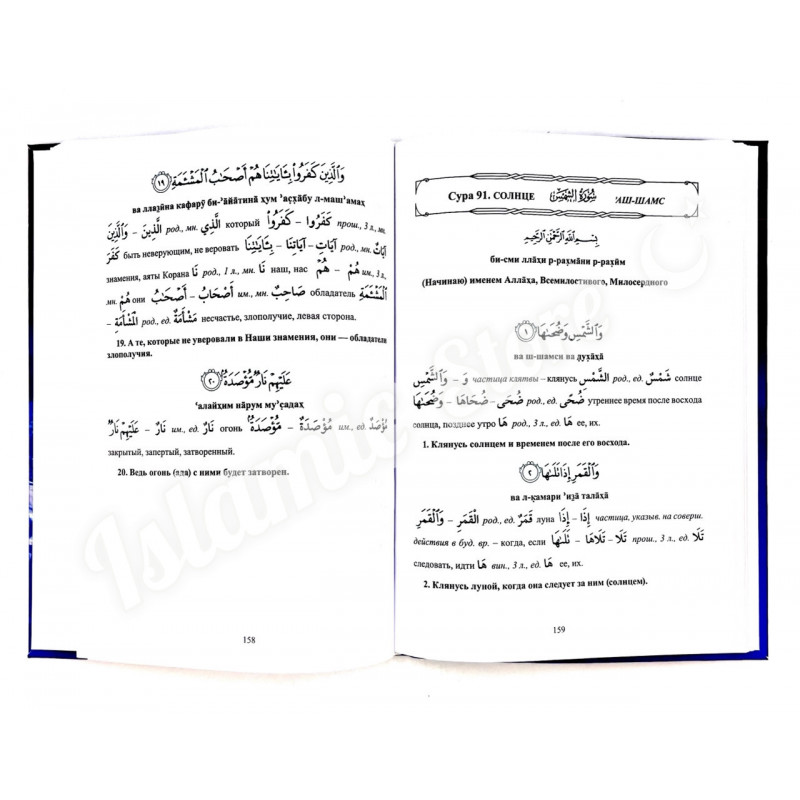 وَالَّذِينَ كَفَرُوا۟ بِـَٔايَٰتِنَا هُمْ أَصْحَٰبُ الْمَشْـَٔمَةِ ١٩
ва ллаẕӣна кафарӯ би-’а̄йāтинā ҳум ’аҫх̣āбу л-маш’амаҳ
وَالَّذِينَ – الَّذِينَ род., мн. الَّذِي который كَفَرُوا۟ – كَفَرُوا прош., 3 л., мн.
كَفَرَ быть неверующим, не веровать بِـَٔايَٰتِنَا – آيَاتِنَا – آيَاتِ род., мн. آيَاتٌ
знамения, аяты Корана نَا род., 1 л., мн. نَا наш, нас هُمْ – هُمْ им., 3 л.,
мн. هُمْ они أَصْحَٰبُ – أَصْحَابُ им., мн. صَاحِبٌ обладатель الْمَشْـَٔمَةِ
– الْمَشْأَمَةِ род., ед. مَشْأَمَةٌ несчастье, злополучие, левая сторона.
19. А те, которые не уверовали в Наши знамения, они — обладатели
злополучия.
عَلَيْهِمْ نَارٌ مُّؤْصَدَةٌۢ ٢٠
‘алайҳим нāрум му’ҫадаҳ
عَلَيْهِمْ نَارٌ – نَارٌ им., ед. نَارٌ огонь مُّؤْصَدَةٌۢ – مُؤْصَدَةٌ им., ед. مُؤْصَدٌ
закрытый, запертый, затворенный.
20. Ведь огонь (ада) с ними будет затворен.
158
Сура 91. СОЛНЦЕ سُورَةُ الشَّمْسِ ’АШ-ШАМС
بِسْمِ اللَّهِ الرَّحْمَٰنِ الرَّحِيمِ
би-сми ллāҳи р-рах̣мāни р-рах̣ӣм
(Начинаю) именем Аллаха, Всемилостивого, Милосердного
وَالشَّمْسِ وَضُحَىٰهَا ١
ва ш-шамси ва д̣ух̣āҳā
وَالشَّمْسِ – وَ частица клятвы – клянусь الشَّمْسِ род., ед. شَمْسٌ солнце
وَضُحَىٰهَا – ضُحَاهَا – ضُحَى род., ед. ضُحًى утреннее время после восхода
солнца, позднее утро هَا род., 3 л., ед. هَا ее, их.
1. Клянусь солнцем и временем после его восхода.
وَالْقَمَرِ إِذَا تَلَىٰهَا ٢
ва л-к̣амари ’иẕā талāҳā
وَالْقَمَرِ – الْقَمَرِ род., ед. قَمَرٌ луна إِذَا – إِذَا частица, указыв. на соверш.
действия в буд. вр. – когда, если تَلَىٰهَا – تَلَاهَا – تَلَا прош., 3 л., ед. تَلَا
следовать, идти هَا вин., 3 л., ед. هَا ее, их.
2. Клянусь луной, когда она следует за ним (солнцем).
159
Islamic Store